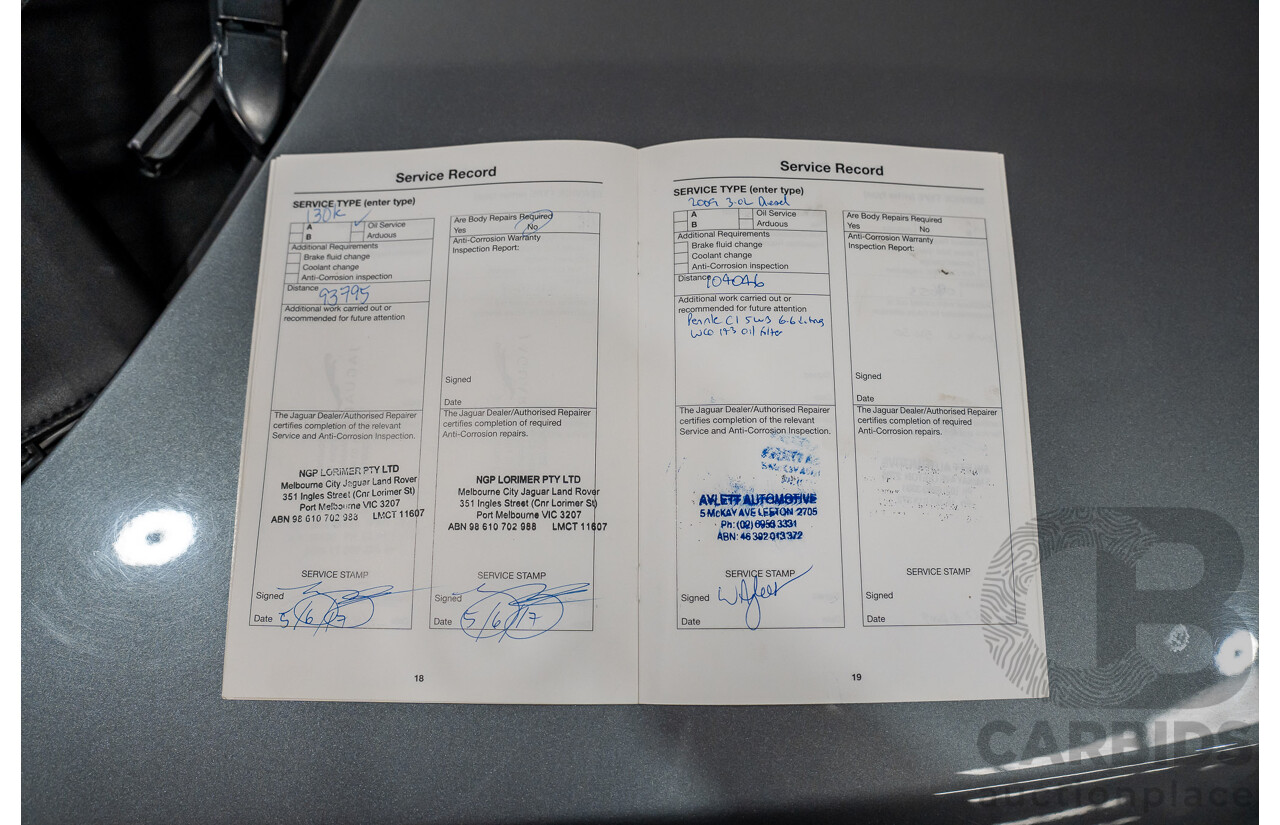 Service Record
SERVICE TYPE (enter type)
130K
A
Oil Service
B
Arduous
Additional Requirements
Brake fluid change
Coolant change
Anti-Corrosion inspection
Distance
93795
Additional work carried out or
recommended for future attention
The Jaguar Dealer/Authorised Repairer
certifies completion of the relevant
Service and Anti-Corrosion Inspection.
NGP LORIMER PTY LTD
Melbourne City Jaguar Land Rover
351 Ingles Street (Cnr Lorimer St)
Port Melbourne VIC 3207
ABN 98 610 702 988 LMCT 11607
SERVICE STAMP
Signed
Date 5/6/17
Are Body Repairs Required
Yes No
Anti-Corrosion Warranty
Inspection Report:
Signed
Date
The Jaguar Dealer/Authorised Repairer
certifies completion of required
Anti-Corrosion repairs.
NGP LORIMER PTY LTD
Melbourne City Jaguar Land Rover
351 Ingles Street (Cnr Lorimer St)
Port Melbourne VIC 3207
ABN 98 610 702 988 LMCT 11607
SERVICE STAMP
Signed
Date 5/6/17
18
Service Record
SERVICE TYPE (enter type)
2009 3.0L Diesel
A
Oil Service
B
Arduous
Additional Requirements
Brake fluid change
Coolant change
Anti-Corrosion inspection
Distance
104046
Additional work carried out or
recommended for future attention
C1 5W3 6.6
oil filter
The Jaguar Dealer/Authorised Repairer
certifies completion of the relevant
Service and Anti-Corrosion Inspection.
AYLETT AUTOMOTIVE
5 McKAY AVE LEETON 2705
Ph: (02) 6953 3331
ABN: 46 392 013 372
SERVICE STAMP
Signed W Aylett
Date
Are Body Repairs Required
Yes No
Anti-Corrosion Warranty
Inspection Report:
Signed
Date
The Jaguar Dealer/Authorised Repairer
certifies completion of required
Anti-Corrosion repairs.
SERVICE STAMP
Signed
Date
19
CARBIDS
auctionplace